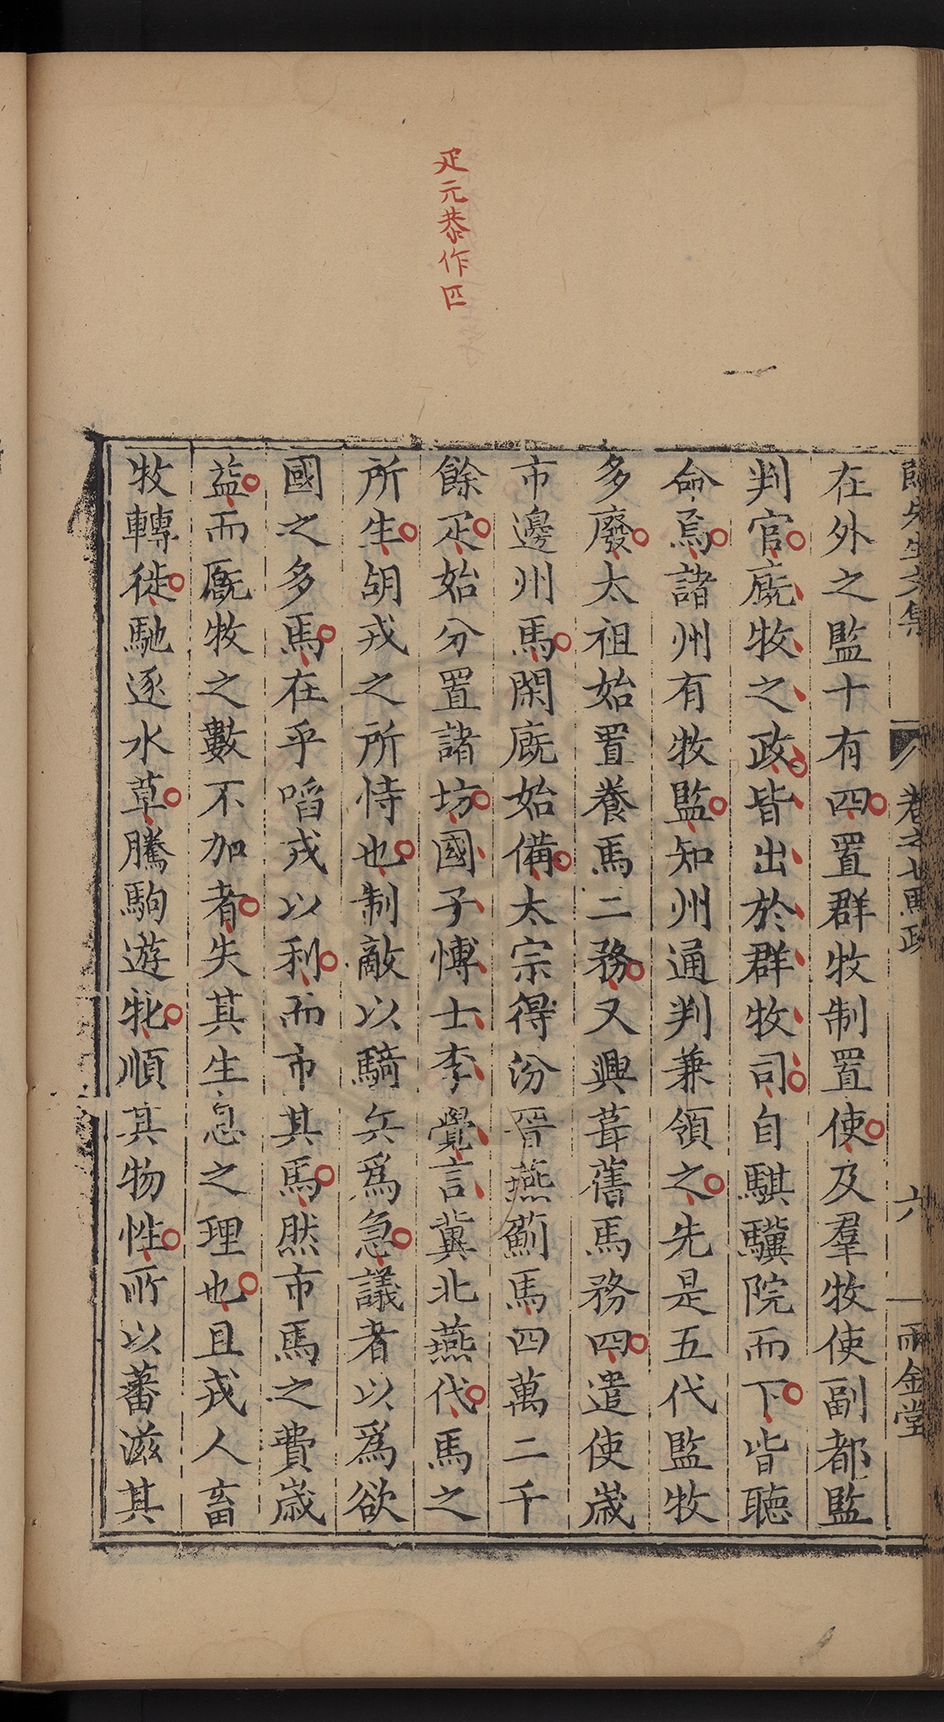 疋元恭作匹
師先生文集 卷之七馬政 六 雨金堂
在外之監十有四置群牧制置使及羣牧使副都監
判官廐牧之政皆出於群牧司自騏驥院而下皆聽
命焉諸州有牧監知州通判兼領之先是五代監牧
多廢太祖始置養馬二務又興葺舊馬務四遣使嵗
市邊州馬閑廐始備太宗得汾晉燕薊馬四萬二千
餘疋始分置諸坊國子博士李覺言冀北燕代馬之
所生胡戎之所恃也制敵以騎兵爲急議者以爲欲
國之多馬在乎啗戎以利而市其馬然市馬之費嵗
益而廐牧之數不加者失其生息之理也且戎人畜
牧轉徙馳逐水草騰駒遊牝順其物性所以蕃滋其